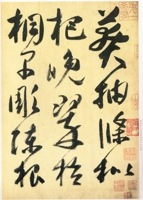 莽抽條枇
杷晚翠梧
桐早彫陳根